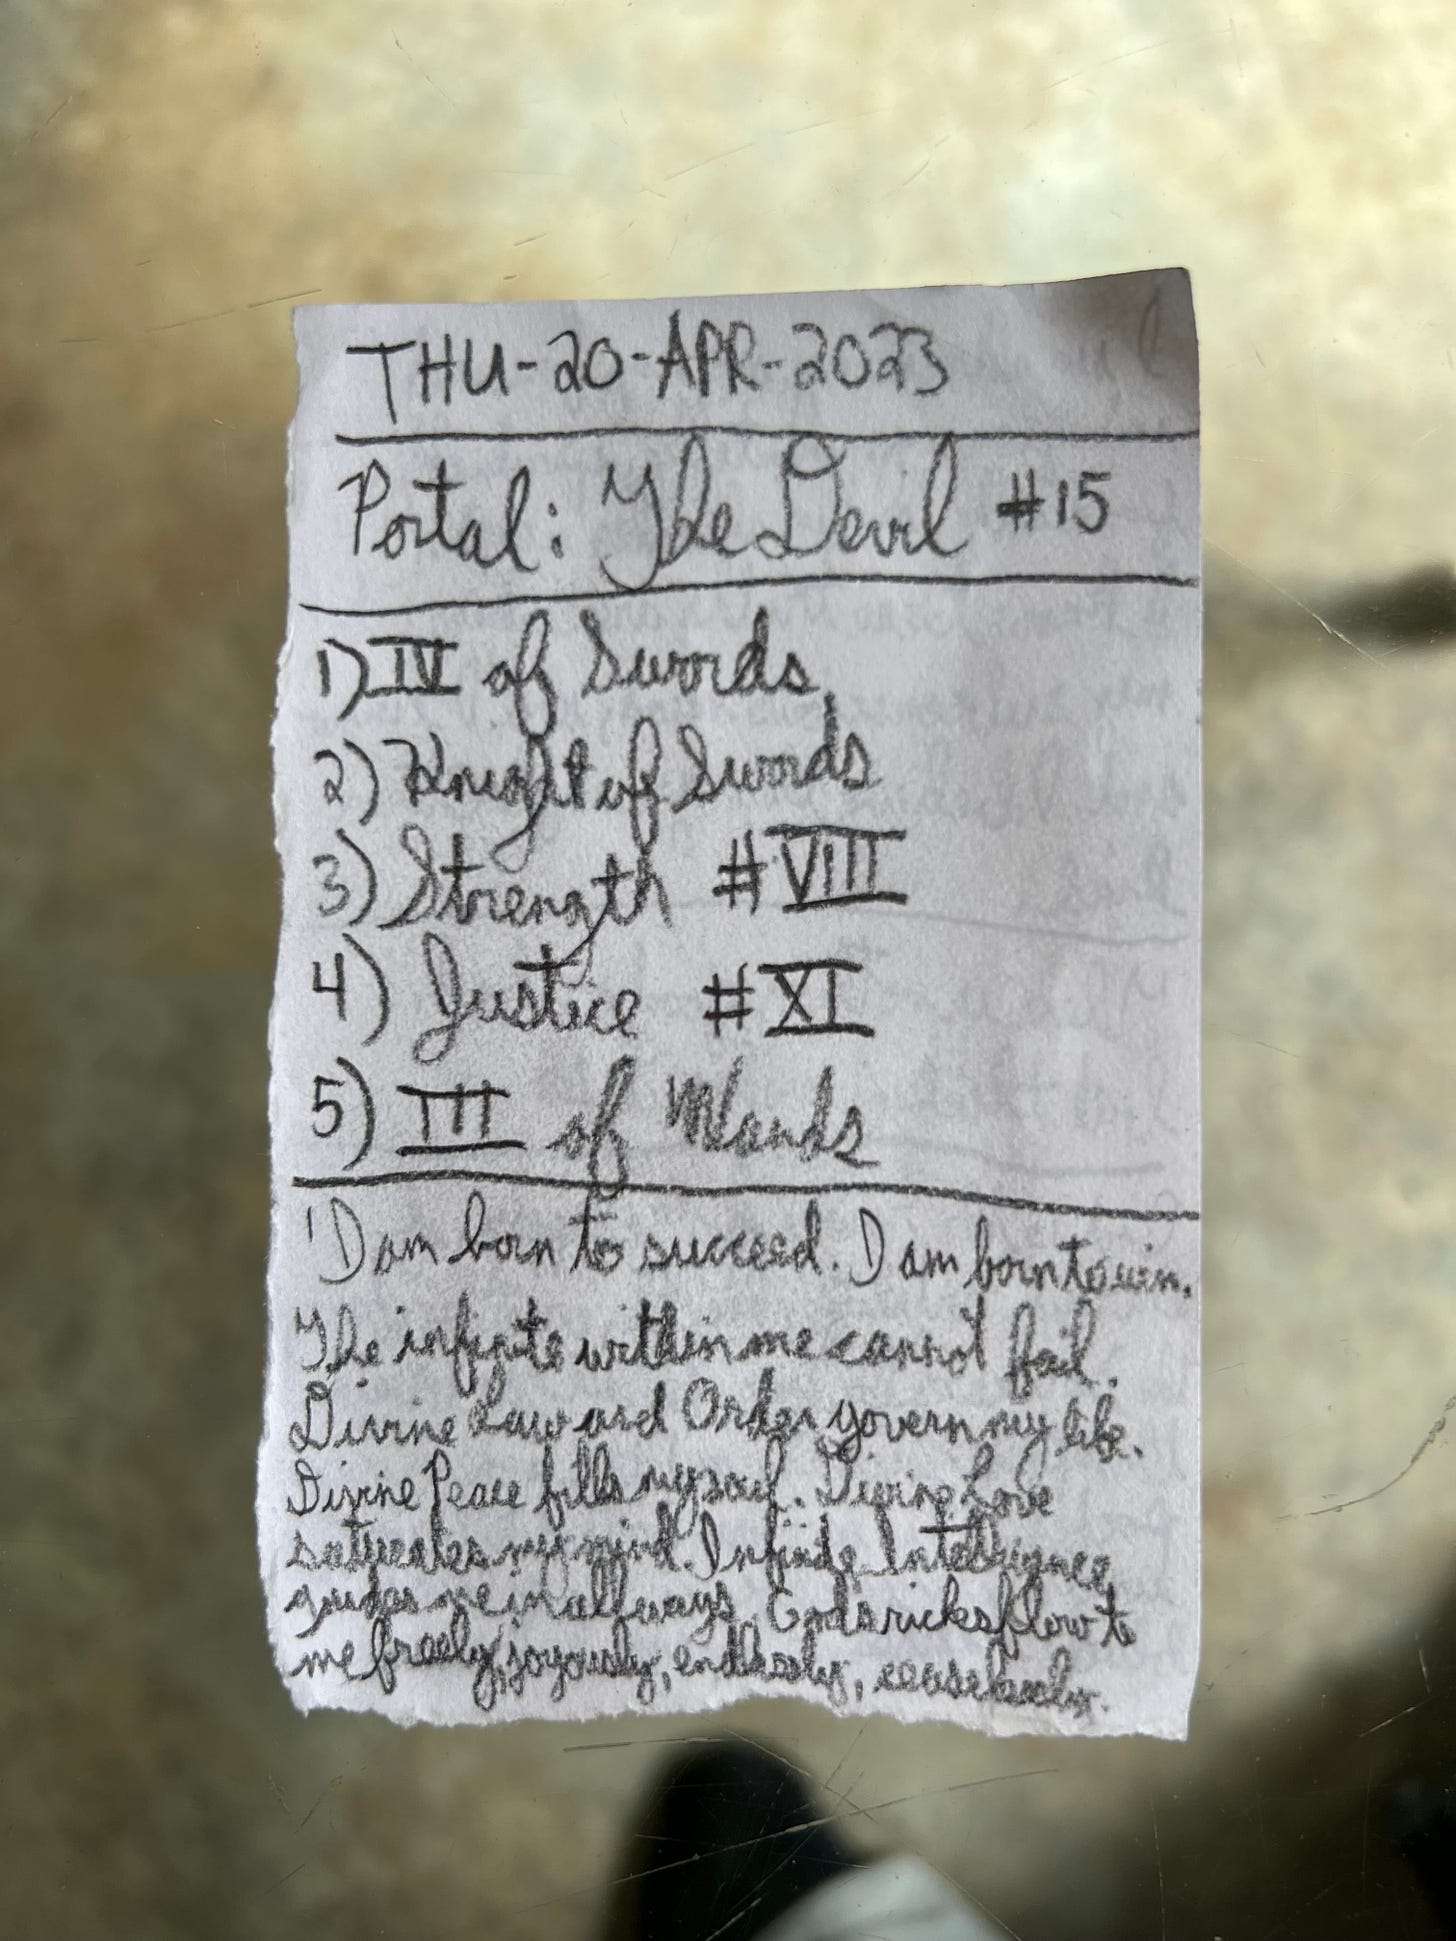 THU-20-APR-2023
Portal: The Devil #15
1) IV of Swords
2) Knight of Swords
3) Strength #VIII
4) Justice #XI
5) III of Wands
'I am born to succeed. I am born to win.
The infinite within me cannot fail.
Divine Law and Order govern my life.
Divine Peace fills my soul. Divine Love
saturates my mind. Infinite Intelligence
guides me in all ways. God's ricks flow to
me freely, joyously, endlessly, ceaselessly.